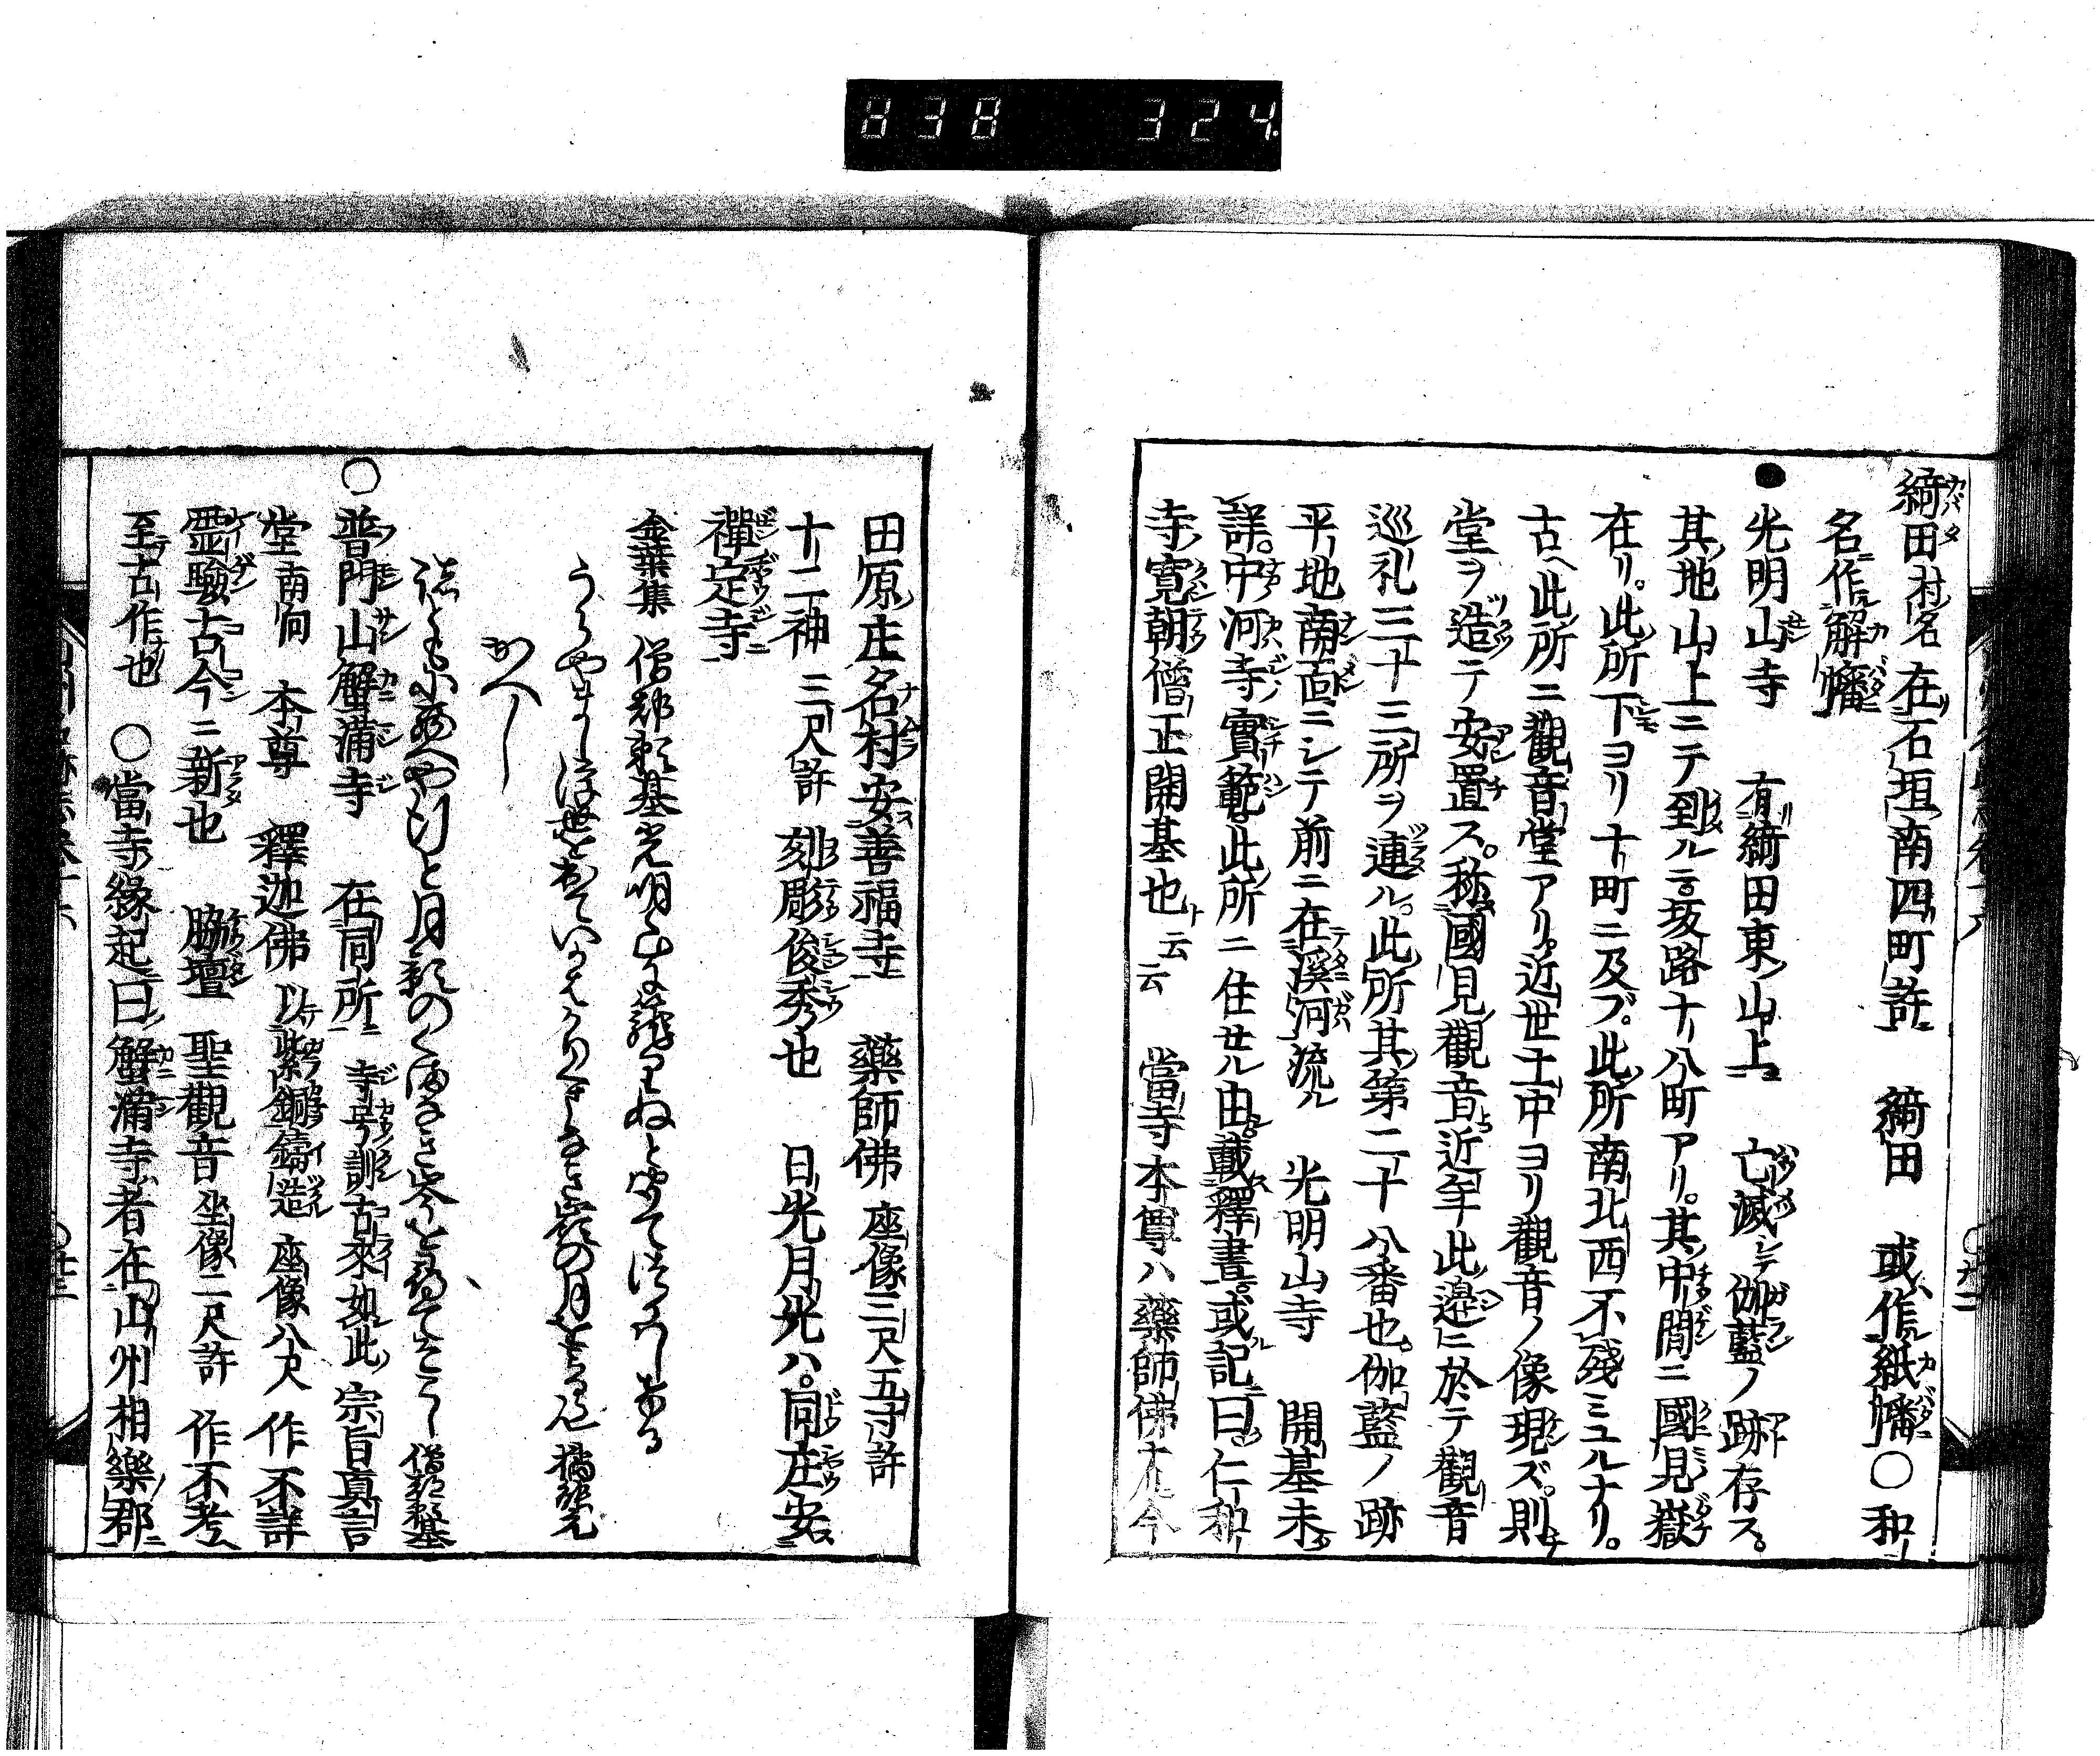 838 324
綺田村名 在石垣南四町許 綺田 或作紙幡〇和
名作解幡
●光明山寺 有綺田東山上 亡滅シテ伽藍ノ跡存ス。
其地山上ニテ到ルニ坂路十八町アリ。其中間ニ國見嶽
在リ。此所下ヨリ十町ニ及ブ。此所南北西不殘ミユルナリ。
古ヘ此所ニ觀音堂アリ。近世土中ヨリ觀音ノ像現ズ。則
堂ヲ造テ安置ス。称國見觀音近年此邊ニ於テ觀音
巡礼三十三所ヲ連ル。此所其第二十八番也。伽藍ノ跡
平地南面ニシテ前ニ在溪河流ル 光明山寺 開基未
詳。中河寺實範此所ニ住セル由載釋書。或記曰仁和
寺寛朝僧正開基也ト云云 當寺本尊ハ藥師佛 今
田原庄名村安善福寺 藥師佛 座像三尺五寸許
十二神 三尺許 刻彫俊秀也 日光月光ハ。同庄安
禪定寺
金葉集 僧都頼基光明山に籠りぬと聞てつかはしける
うらやまし浮世を出ていかはかりくまなき嶺の月をみるらん 橘能元
かへし
もろともに西へや行と月影のくまなき峯を尋てそこし 僧都頼基
〇普門山蟹滿寺 在同所 寺号訓古來如此 宗旨真言
堂南向 本尊 釋迦佛 以紫銅鑄造 座像八尺 作不詳
霊驗古今ニ新也 脇壇 聖觀音 坐像二尺許 作不考
至古作也 〇當寺縁起曰蟹滿寺者在山州相樂郡